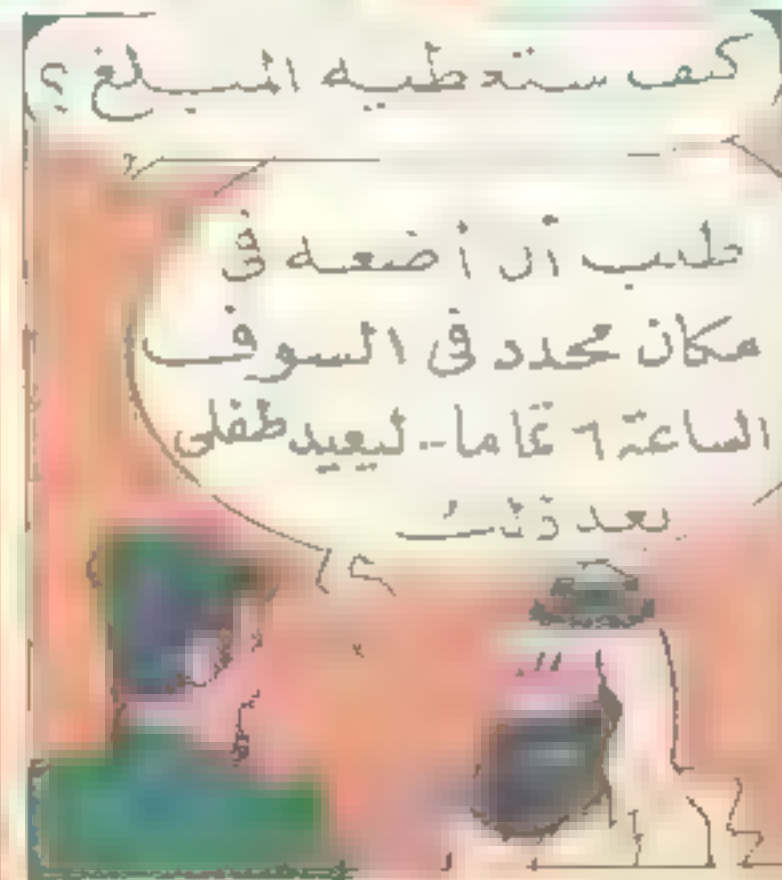 كيف ستعطيه المبلغ ؟
طلب أن أضعه في
مكان محدد في السوق
الساعة ٦ تماما -- ليعيد طفلي
بعد ذلك